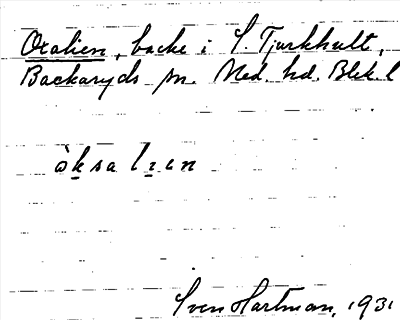 Oxalien, backe i S. Tjurkhult,
Backaryds sn. Med. hd. Blek. l
òksalıen
Sven Hartman, 1931